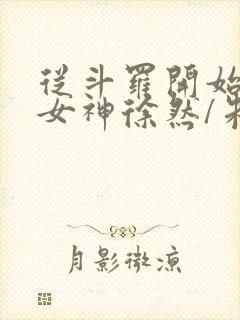 從斗羅開始
女神徐然/朱
月影微涼